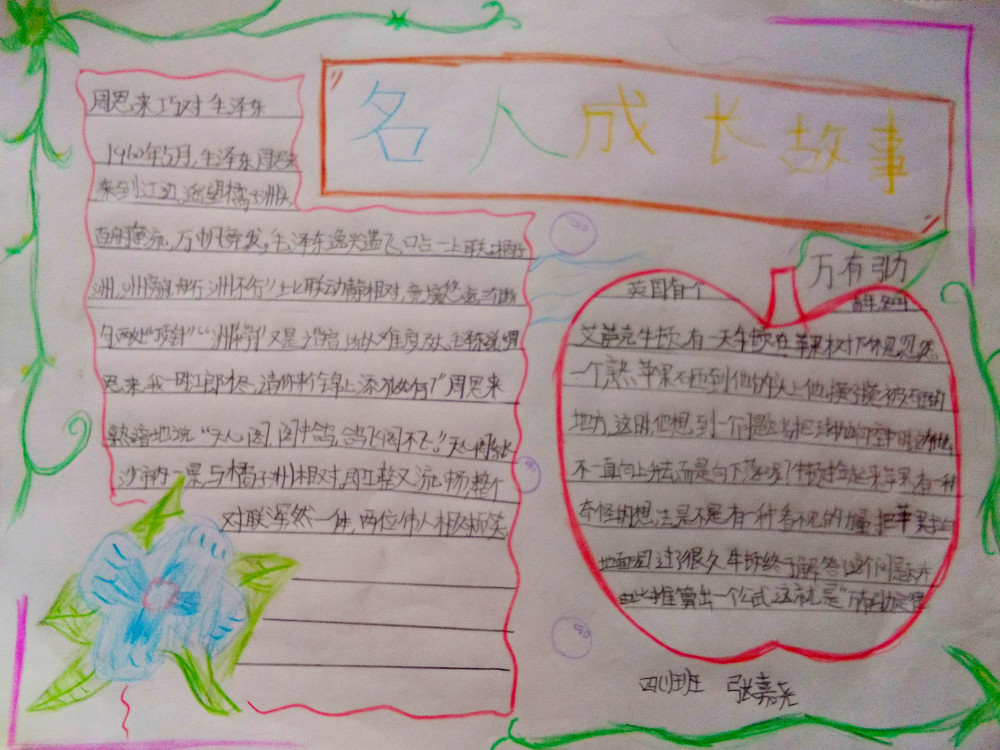 名人成长故事
周恩来巧对毛泽东
1960年5月,毛泽东周恩来
来到江边,遥望橘子洲头,
百舸争流,万帆竞发,毛泽东逸兴遄飞,口占一上联:橘子
洲,洲旁舟,舟行洲不行"上联动静相对,意境悠远
句两处"顶针""洲""舟"又是谐音,出人难度
恩来,我一时江郎才尽,请你来个锦上添花如何?"周恩来
熟谙地说"天心阁,阁中鸽,鸽飞阁不飞。"天心阁系长
沙市内一景,与橘子洲相对,周工整又流畅,整个
对联浑然一体,两位伟人相视而笑。
万有引力
英国有个
艾萨克牛顿,有一天牛顿在苹果树下休息忽然
一个熟苹果石西到他的头上他摸了摸被石西的
地方,这时,他想到一个问题:
不一直向上去,而是向下落呢?牛顿拿起来苹果有一种
奇怪的想法是不是有一种看不见的力量把苹果拉向
地面呢过了很久牛顿终于解答这个问题并
由此推算出一个公式这就是"万有引力定律
四班 张嘉尧